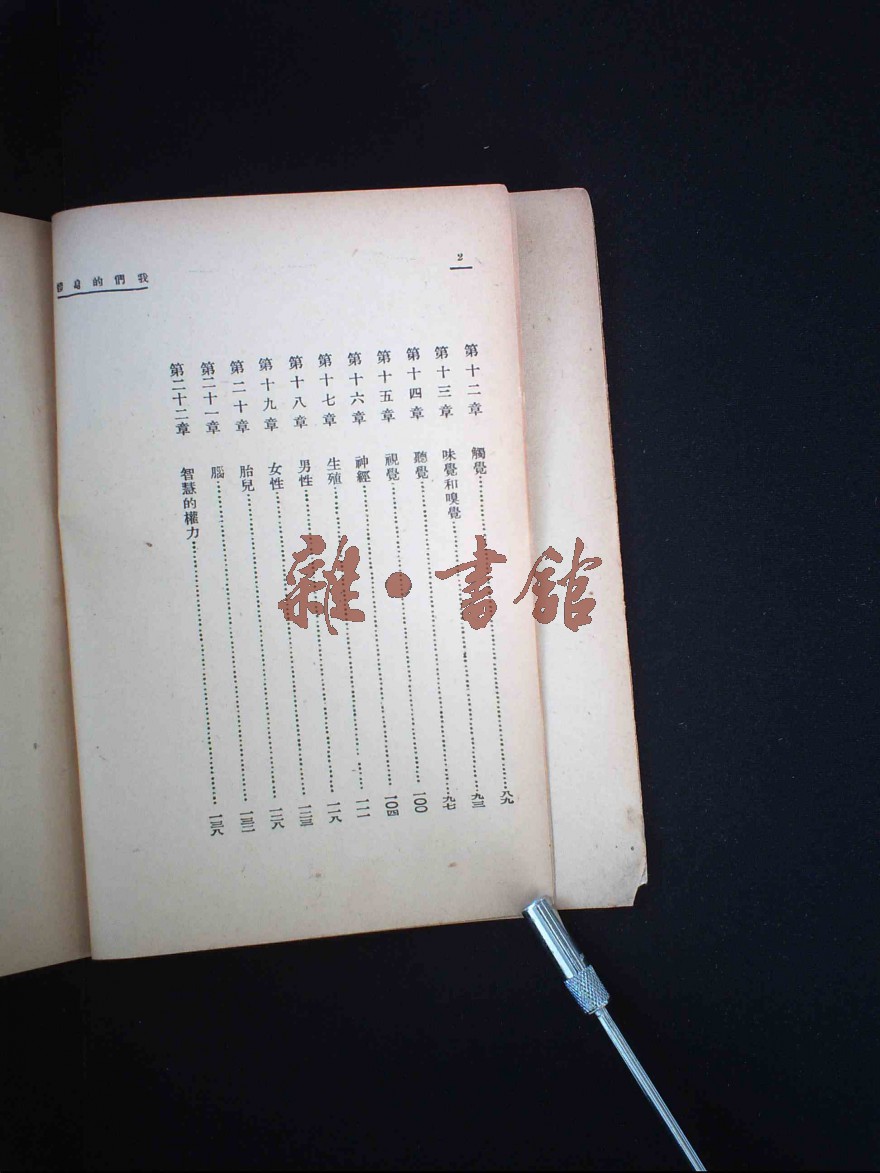 2
我們的身體
第十二章 觸覺……八九
第十三章 味覺和嗅覺……九三
第十四章 聽覺……九七
第十五章 視覺……一〇〇
第十六章 神經……一〇四
第十七章 生殖……一一一
第十八章 男性……一一八
第十九章 女性……一二三
第二十章 胎兒……一二八
第二十一章 腦……一三二
第二十二章 智慧的權力……一三八
雜·書館